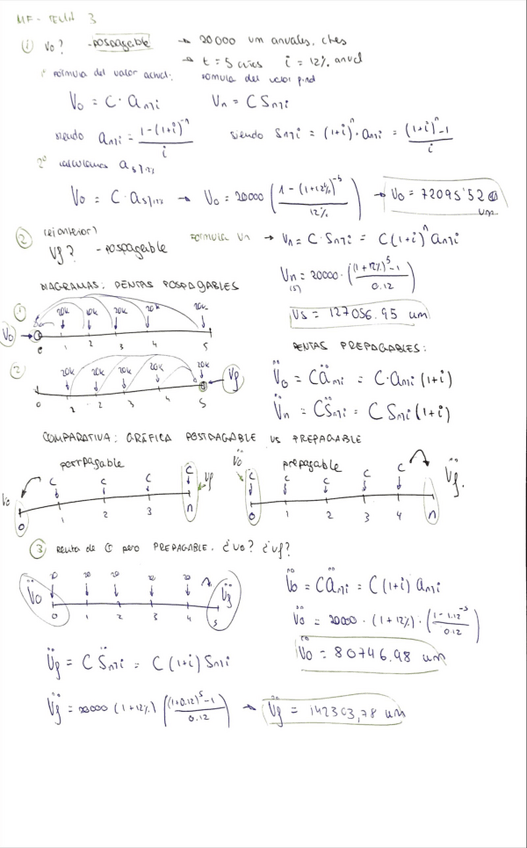 ① Vo? - pospagable → 20000 um anuales,
→ t = 5 i = 12% anual
1º Formula del valor actual:
Vo = C · a n¬i Vn = C S n¬i
siendo a n¬i = (1-(1+i)^-n)/i siendo S n¬i = (1+i)^n · a n¬i = ((1+i)^n - 1)/i
2º calculamos a 5¬12
Vo = C · a 5¬12 → Vo = 20000 ((1-(1+12%)^-5)/12%) → Vo = 72095'52 um
② (ej anterior)
Vf? - pospagable Formula Vn → Vn = C · S n¬i = C (1+i)^n a n¬i
Vn (5) = 20000 · (((1+12%)^5 - 1)/0.12)
V5 = 127056.95 um
DIAGRAMAS: RENTAS POSPAGABLES
① 20k 20k 20k 20k 20k
Vo → 0 1 2 3 4 5
② 20k 20k 20k 20k 20k
0 1 2 3 4 5 Vf
RENTAS PREPAGABLES:
V̈o = C ä n¬i = C · a n¬i (1+i)
V̈n = C S̈ n¬i = C S n¬i (1+i)
COMPARATIVA: GRÁFICA POSTPAGABLE VS PREPAGABLE
postpagable
Vo C C C C Vf
0 1 2 3 n
prepagable
V̈o C C C C C V̈f.
0 1 2 3 4 n
③ Renta de ① pero PREPAGABLE. ¿Vo? ¿Vf?
20 20 20 20 20
V̈o 0 1 2 3 4 5 V̈f
V̈o = C ä n¬i = C (1+i) a n¬i
V̈o = 20000 · (1+12%) · ((1-1.12^-5)/0.12)
V̈o = 80746.98 um
V̈f = C S̈ n¬i = C (1+i) S n¬i
V̈f = 20000 (1+12%) (((1+0.12)^5 - 1)/0.12) → V̈f = 142303,78 um